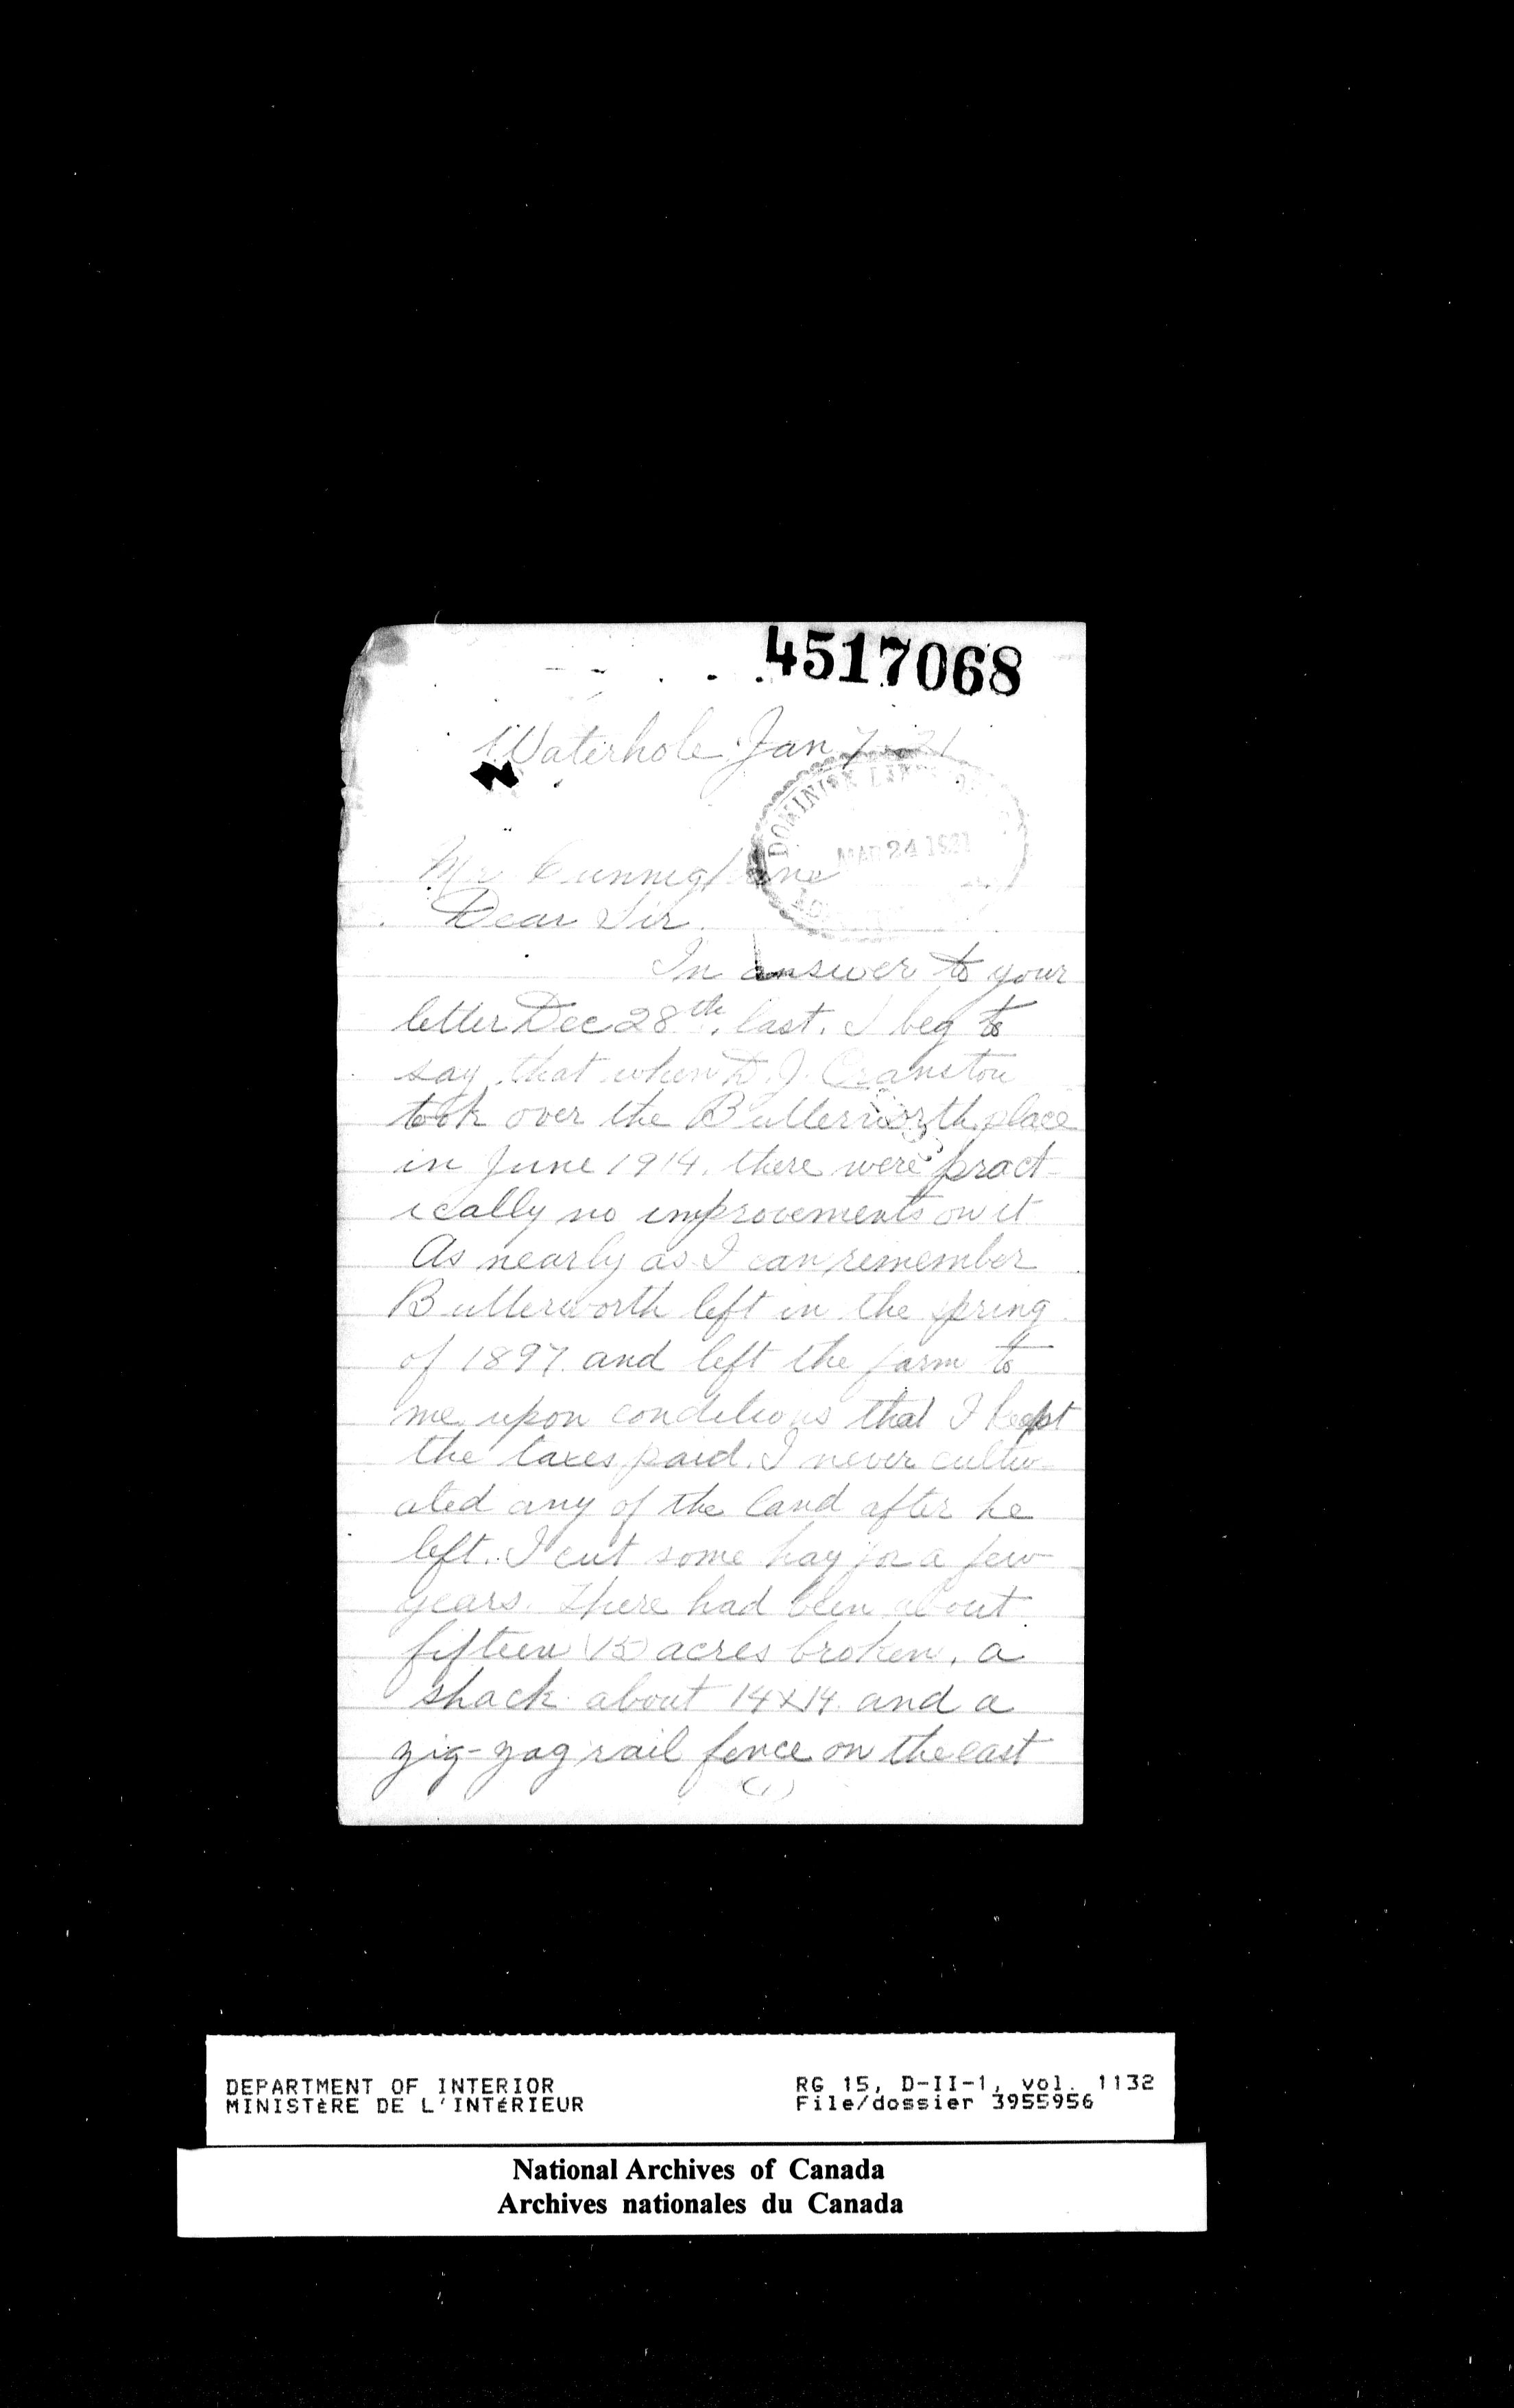 4517068
Waterhole Jan 7 - 21
DOMINION LANDS
MAR 24 1921
Mr Cunnighame
Dear Sir.
In answer to your
letter Dec 28th, last. I beg to
say that when D. J. Cranston
took over the Butterworth place
in June 1914. there were pract-
ically no improvements on it
As nearly as I can remember
Butterworth left in the spring
of 1897. and left the farm to
me upon conditions that I kept
the taxes paid. I never cultiv-
ated any of the land after he
left. I cut some hay for a few
years. There had been about
fifteen (15) acres broken, a
shack about 14x14. and a
zig-zag rail fence on the east
(1)
DEPARTMENT OF INTERIOR RG 15, D-II-1, vol. 1132
MINISTÈRE DE L'INTÉRIEUR File/dossier 3955956
National Archives of Canada
Archives nationales du Canada